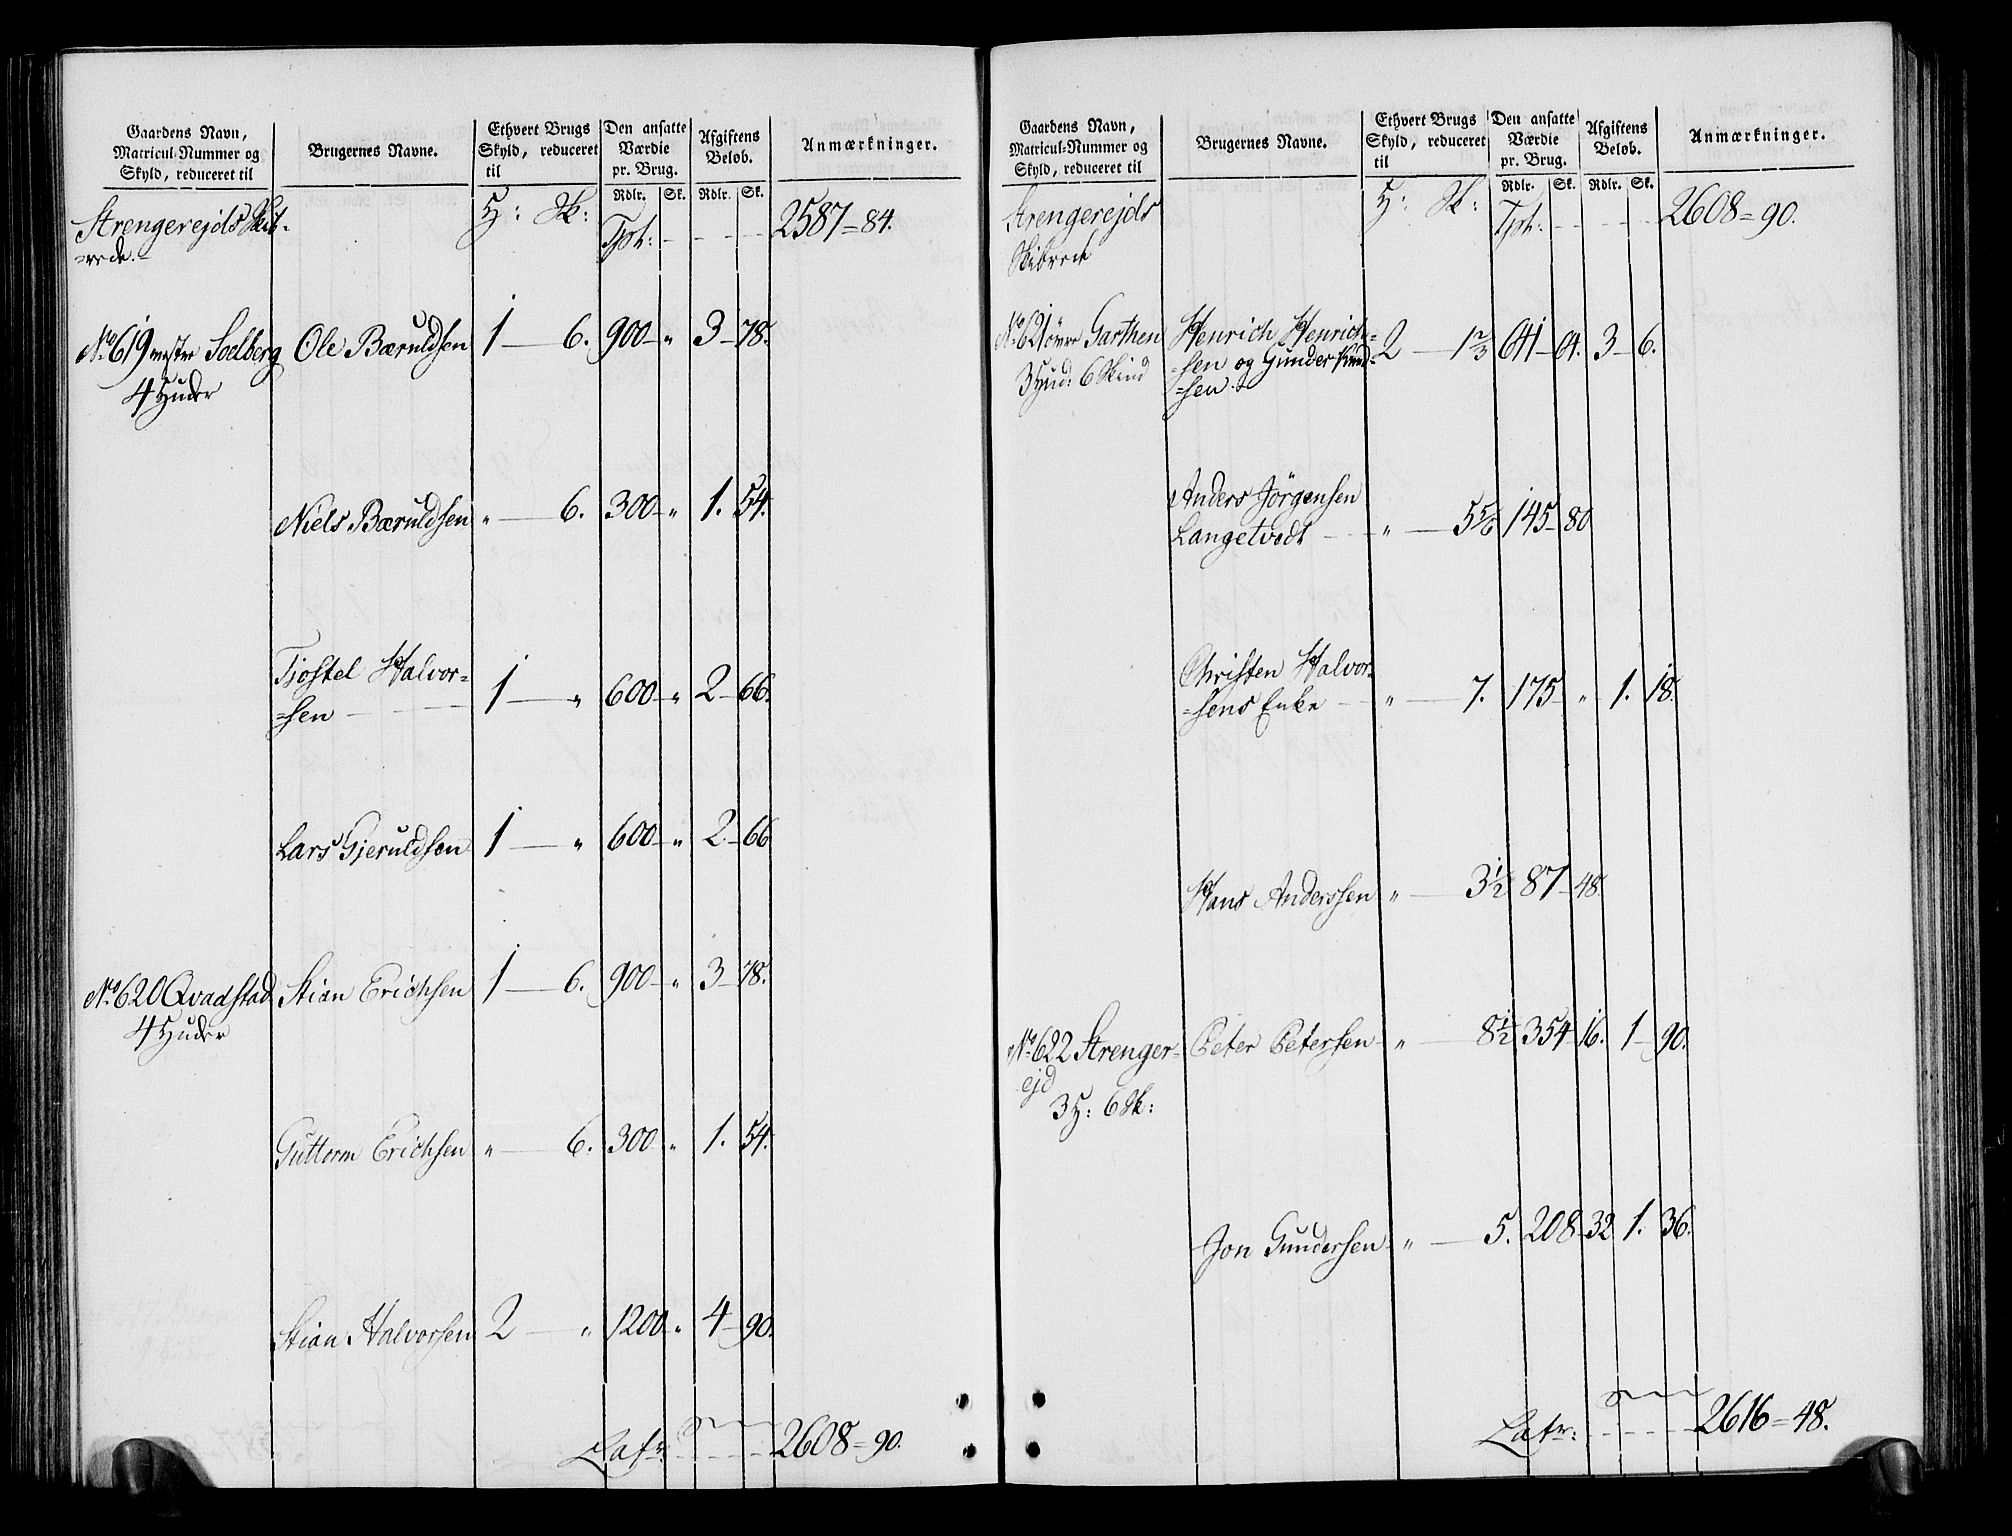 Gaardens Navn, Matricul-Nummer og Skyld, reduceret til | Brugernes Navne. | Ethvert Brugs Skyld, reduceret til | Den ansatte Værdie pr. Brug. | Afgiftens Beløb. | Anmærkninger.
Rdlr. Sk. Rdlr. Sk.
Strengerejds Skib- H: Sk: Tpt: - - - - 2587=84.
=rede.
No 619 vestre Soelberg Ole Bæruldsen 1 — 6. 900 - " 3 - 78.
4 Huder
Niels Bæruldsen " — 6. 300 - " 1. 54.
Tiostel Halvor=
=sen 1 — " 600 - " 2 - 66.
Lars Gjeruldsen 1 — " 600 - " 2 - 66
No 620 Qvadstad Stian Erichsen 1 — 6. 900 - " 3 - 78.
4 Huder
Guttorm Erichsen " — 6. 300 - " 1. 54.
Stian Halvorsen 2 — " 1200 - " 4 - 90.
Latr: - - - - 2608=90.
Gaardens Navn, Matricul-Nummer og Skyld, reduceret til | Brugernes Navne. | Ethvert Brugs Skyld, reduceret til | Den ansatte Værdie pr. Brug. | Afgiftens Beløb. | Anmærkninger.
Rdlr. Sk. Rdlr. Sk.
Strengerejds H: Sk: Tpt: - - - - 2608=90.
Skibrede
No 621 øvre Garthen Henrich Henrich= 2 — 1 2/3 641 - 64. 3 - 6.
3 Hud: 6 Skind =sen og Gunder Knud=
=sen.
Anders Jörgensen
Langetvedt - - " — 5 5/6 145 - 80
Christen Halvor=
=sens Enke - - " — 7. 175 - " 1. 18.
Hans Anderssen " — 3 1/2 87 - 48.
No 622 Strenger= Peter Petersen - " — 8 1/2 354 16. 1 - 90.
ejd
3 H: 6 Sk:
Jon Gundersen " — 5. 208 - 32 1. 36.
Latr: - - - - 2616=48.